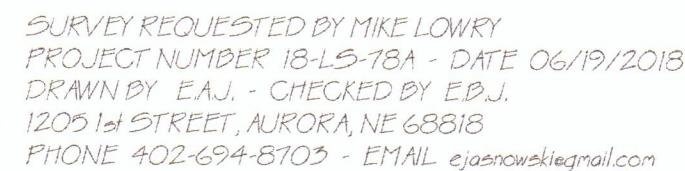 SURVEY REQUESTED BY MIKE LOWRY
PROJECT NUMBER 18-LS-78A - DATE 06/19/2018
DRAWN BY E.A.J. - CHECKED BY E.B.J.
1205 1st STREET, AURORA, NE 68818
PHONE 402-694-8703 - EMAIL ejasnowski@gmail.com